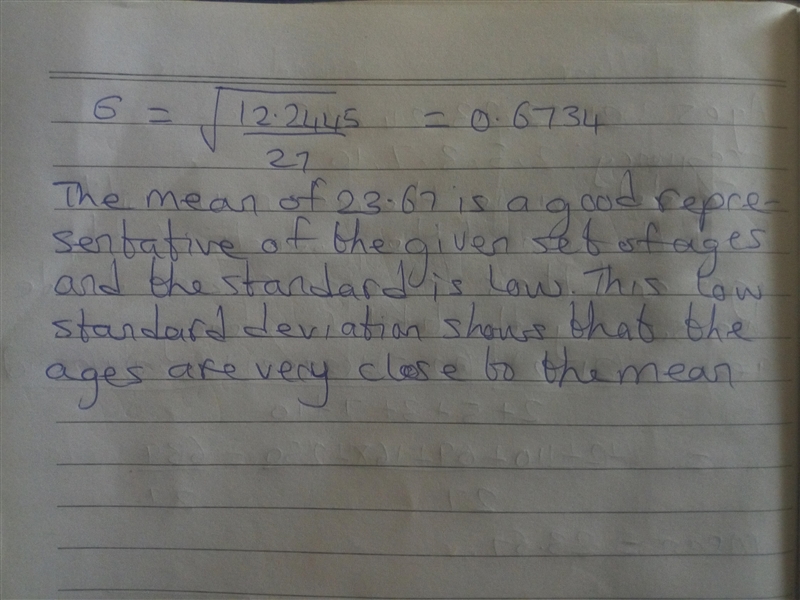 σ = √12.2445 = 0.6734
27
The mean of 23.67 is a good repre-
sentative of the given set of ages
and the standard is low. This low
standard deviation shows that the
ages are very close to the mean